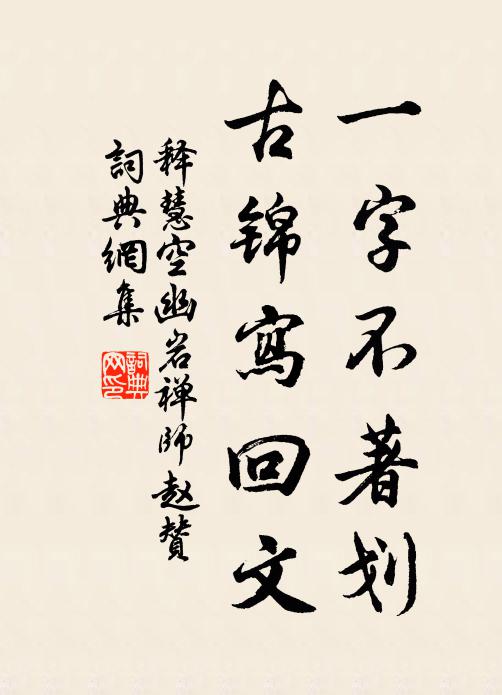 一字不著划
古锦寫回文
释慧空幽岩禅師赵賛
詞典網集
詞典網印